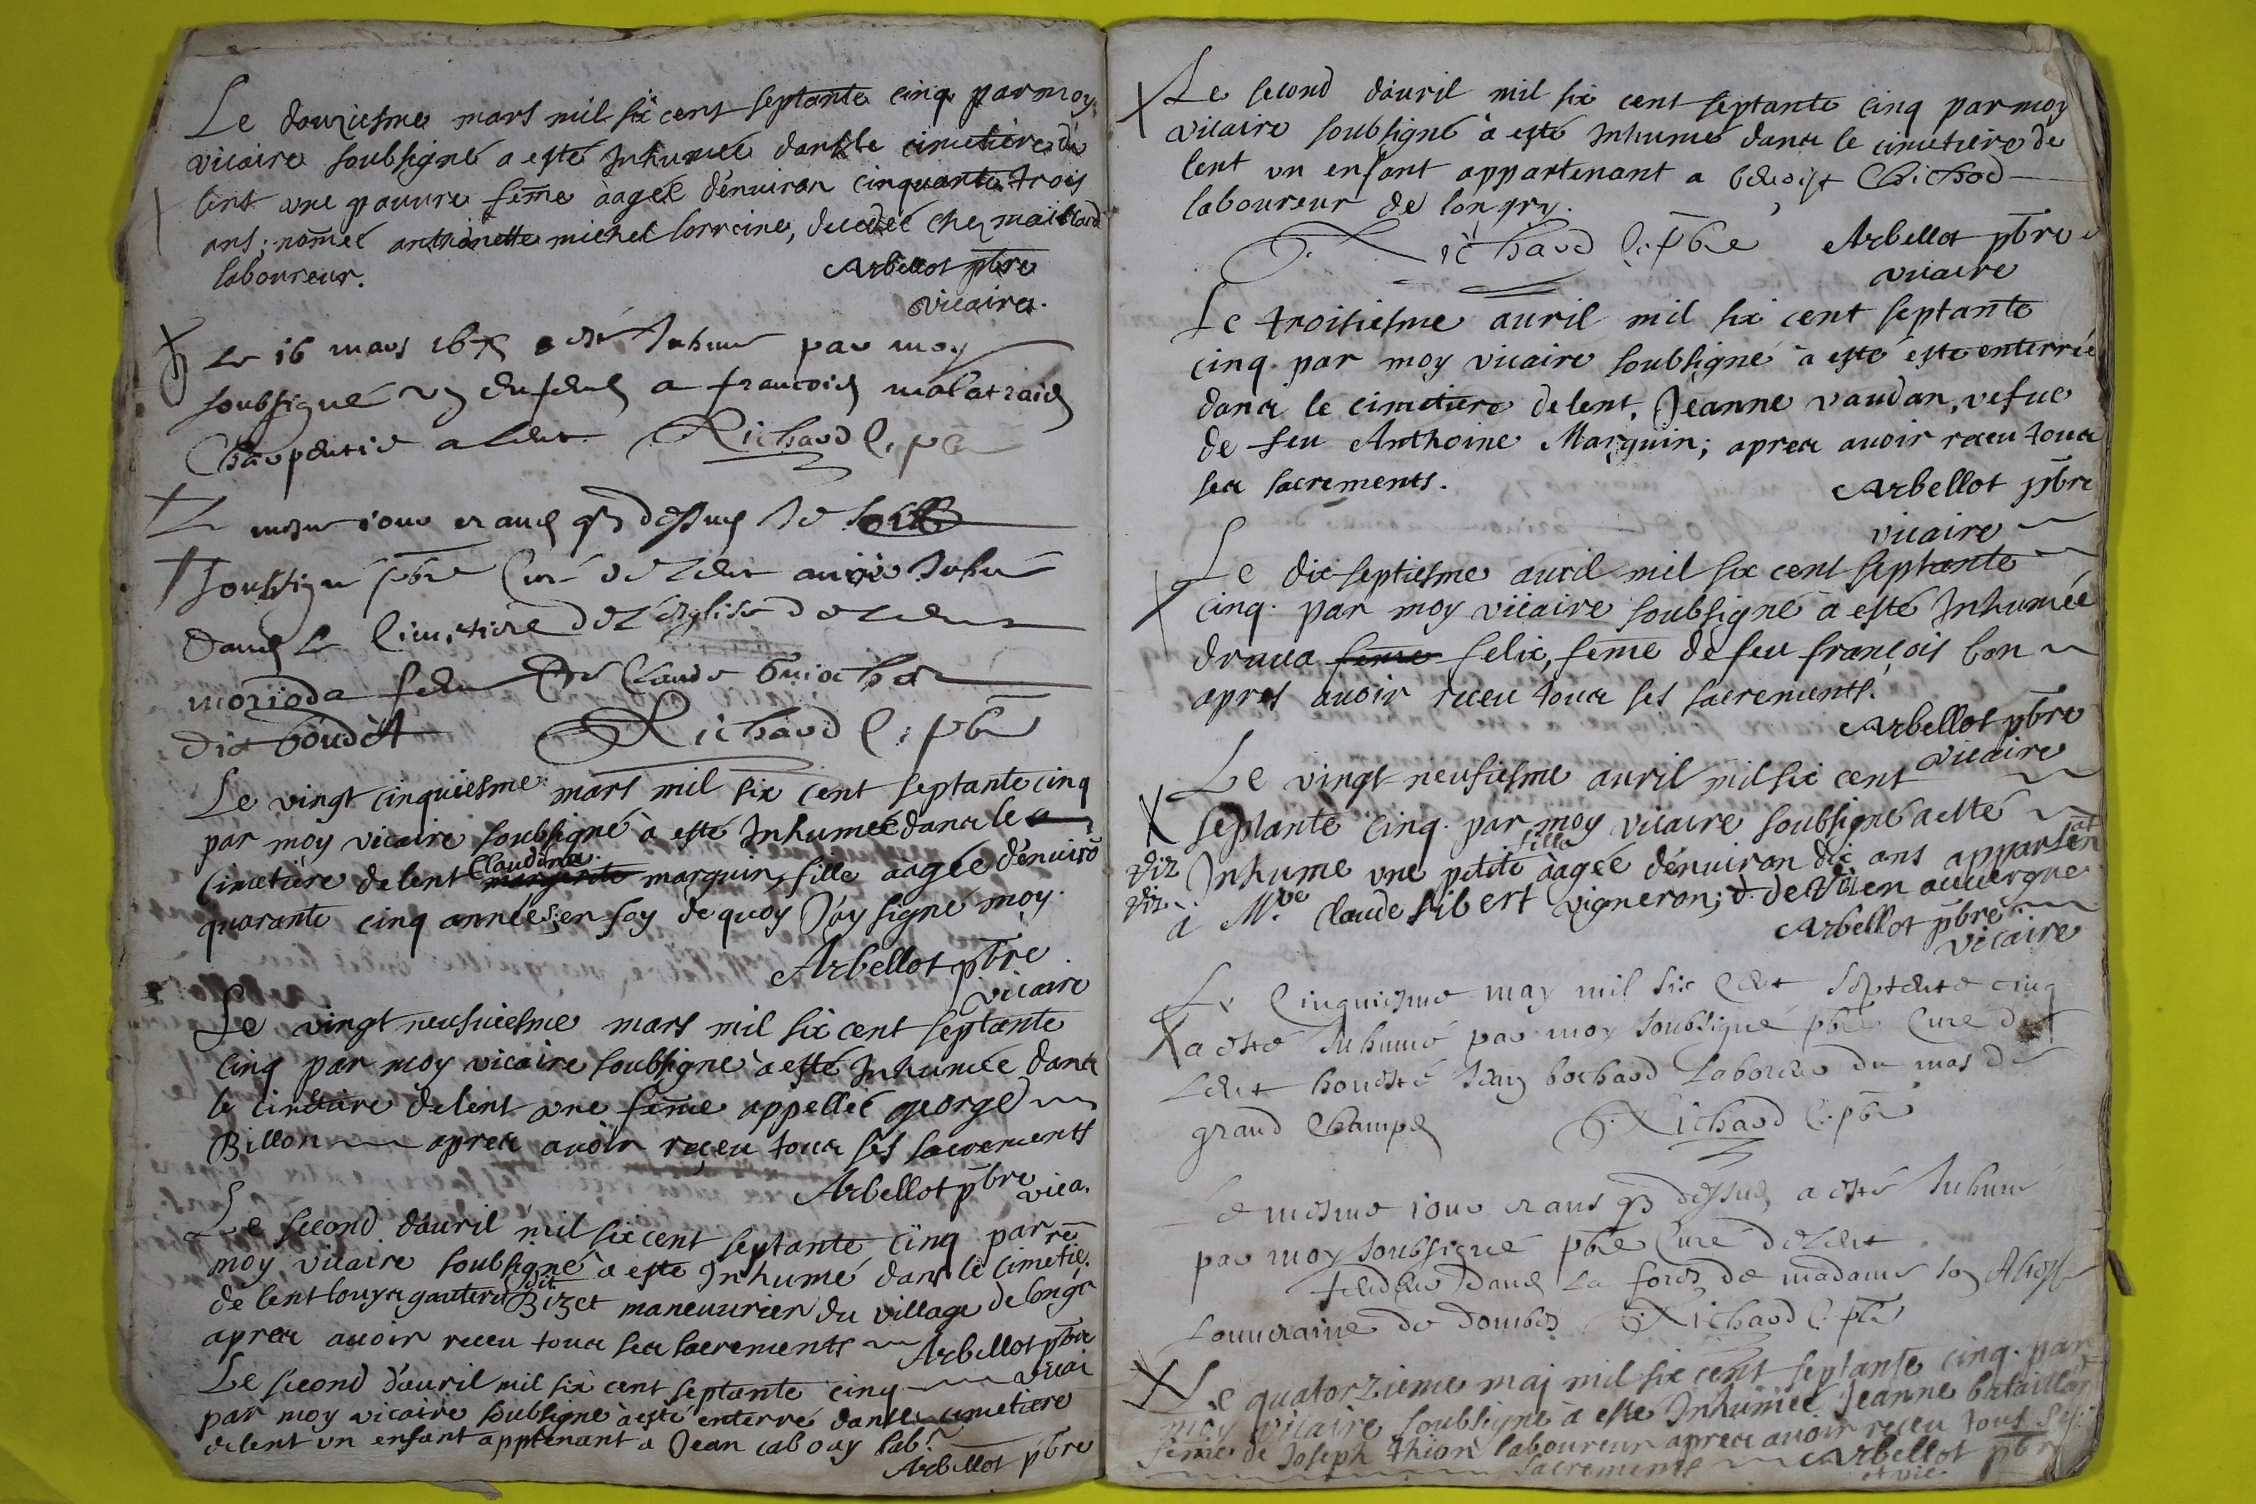 Le douziesme mars mil six cent septante cinq par moy
vicaire soubsigné a esté Inhumée dans le cimetiere de
lent une pauvre feme àagée d'enuiron cinquante trois
ans, nomée anthoinette michel lorraine, decedée chez maillard
laboureur.
Arbellot pbre
vicaire.
Le 16 mars 1675 a esté Inhume par moy
soubsigné un enfens a francois malatraid
Charpentie a Lent Richard C. pbr
Le mesme iour et ans q dessus Je
soubsigné pbre Curé de Lent auoir Inhué
dans le Cimetiere de l'esglise de Lent
feme de Claude
dit boudet Richard C. pbr
Le vingt cinquiesme mars mil six cent septante cinq
par moy vicaire soubsigné à esté Inhumée dans le
cimetiere de lent Claudine marguin, fille àagée d'enuirõ
quarante cinq années; en foy de quoy J'ay signé moy
Arbellot pbre
vicaire
Le vingt neufuiesme mars mil six cent septante
cinq par moy vicaire soubsigné à esté Inhumée dans
le cimetiere de lent une feme appellée george
Billon apres auoir reçeu tous ses sacrements
Arbellot pbre
vica.
Le second d'auril mil six cent septante cinq par
moy vicaire soubsigné a esté Inhumé dans le cimetie.re
de lent louys gautier dit Bizet maneuurier du village de longr
apres auoir receu tous ses sacrements Arbellot pbre
vicai
Le second d'auril mil six cent septante cinq
par moy vicaire soubsigné à esté enterré dans le cimetiere
de lent un enfant apptenant a Jean cabouy lab.r
Arbellot pbre
Le second d'auril mil six cent septante cinq par moy
vicaire soubsigné à esté Inhumé dans le cimetiere de
lent un enfant appartenant a benoist Chichod
laboureur de longry.
Richard C. pbre Arbellot pbre
vicaire
Le troisiesme auril mil six cent septante
cinq par moy vicaire soubsigné à esté este enterrée
dans le cimetiere de lent, Jeanne vaudan, vefue
de feu Anthoine Marguin; apres auoir receu tous
ses sacrements. Arbellot pbre
vicaire
Le dix septiesme auril mil six cent septante
cinq par moy vicaire soubsigné à esté Inhumée
feme felix, feme de feu françois bon
apres auoir receu tous ses sacrements.
Arbellot pbre
vicaire
Le vingt neufiesme auril mil six cent
septante cinq par moy vicaire soubsigné a esté
Inhume une petite fille àagée d'enuiron dix ans appartenãt
a M.re Claude Sibert vigneron; d. de en auuergne
Arbellot pbre
vicaire
Le Cinquiesme may mil six Cent septente cinq
a esté Inhumé par moy soubsigné pbre Cure de
Lent honesté Jean bochard Laboreur du mas de
grand Champs Richard C. pbr
Le mesme iour et ans q dessus a esté Inhumé
par moy soubsigné pbre Cure de Lent
dans la forez de madame son Altesse
souueraine de dombes Richard C. pbr
Le quatorzieme maj mil six cent septante cinq par
moy vicaire soubsigné à esté Inhumée Jeanne bataillard
feme de Joseph thion laboureur apres auoir receu tous ses
sacrements Arbellot pbre
et vic